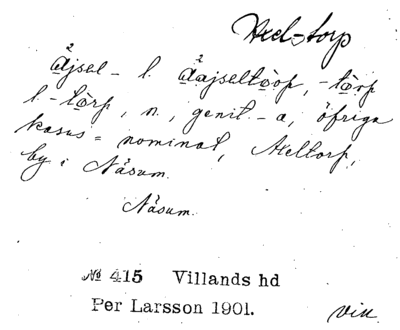 Axeltorp
Äjsel- l. Äajseltorp, -tårp
l -tårp, n., genit -a, öfriga
kasus = nominat, Axeltorp,
by i Näsum.
Näsum.
№ 415 Villands hd
Per Larsson 1901.